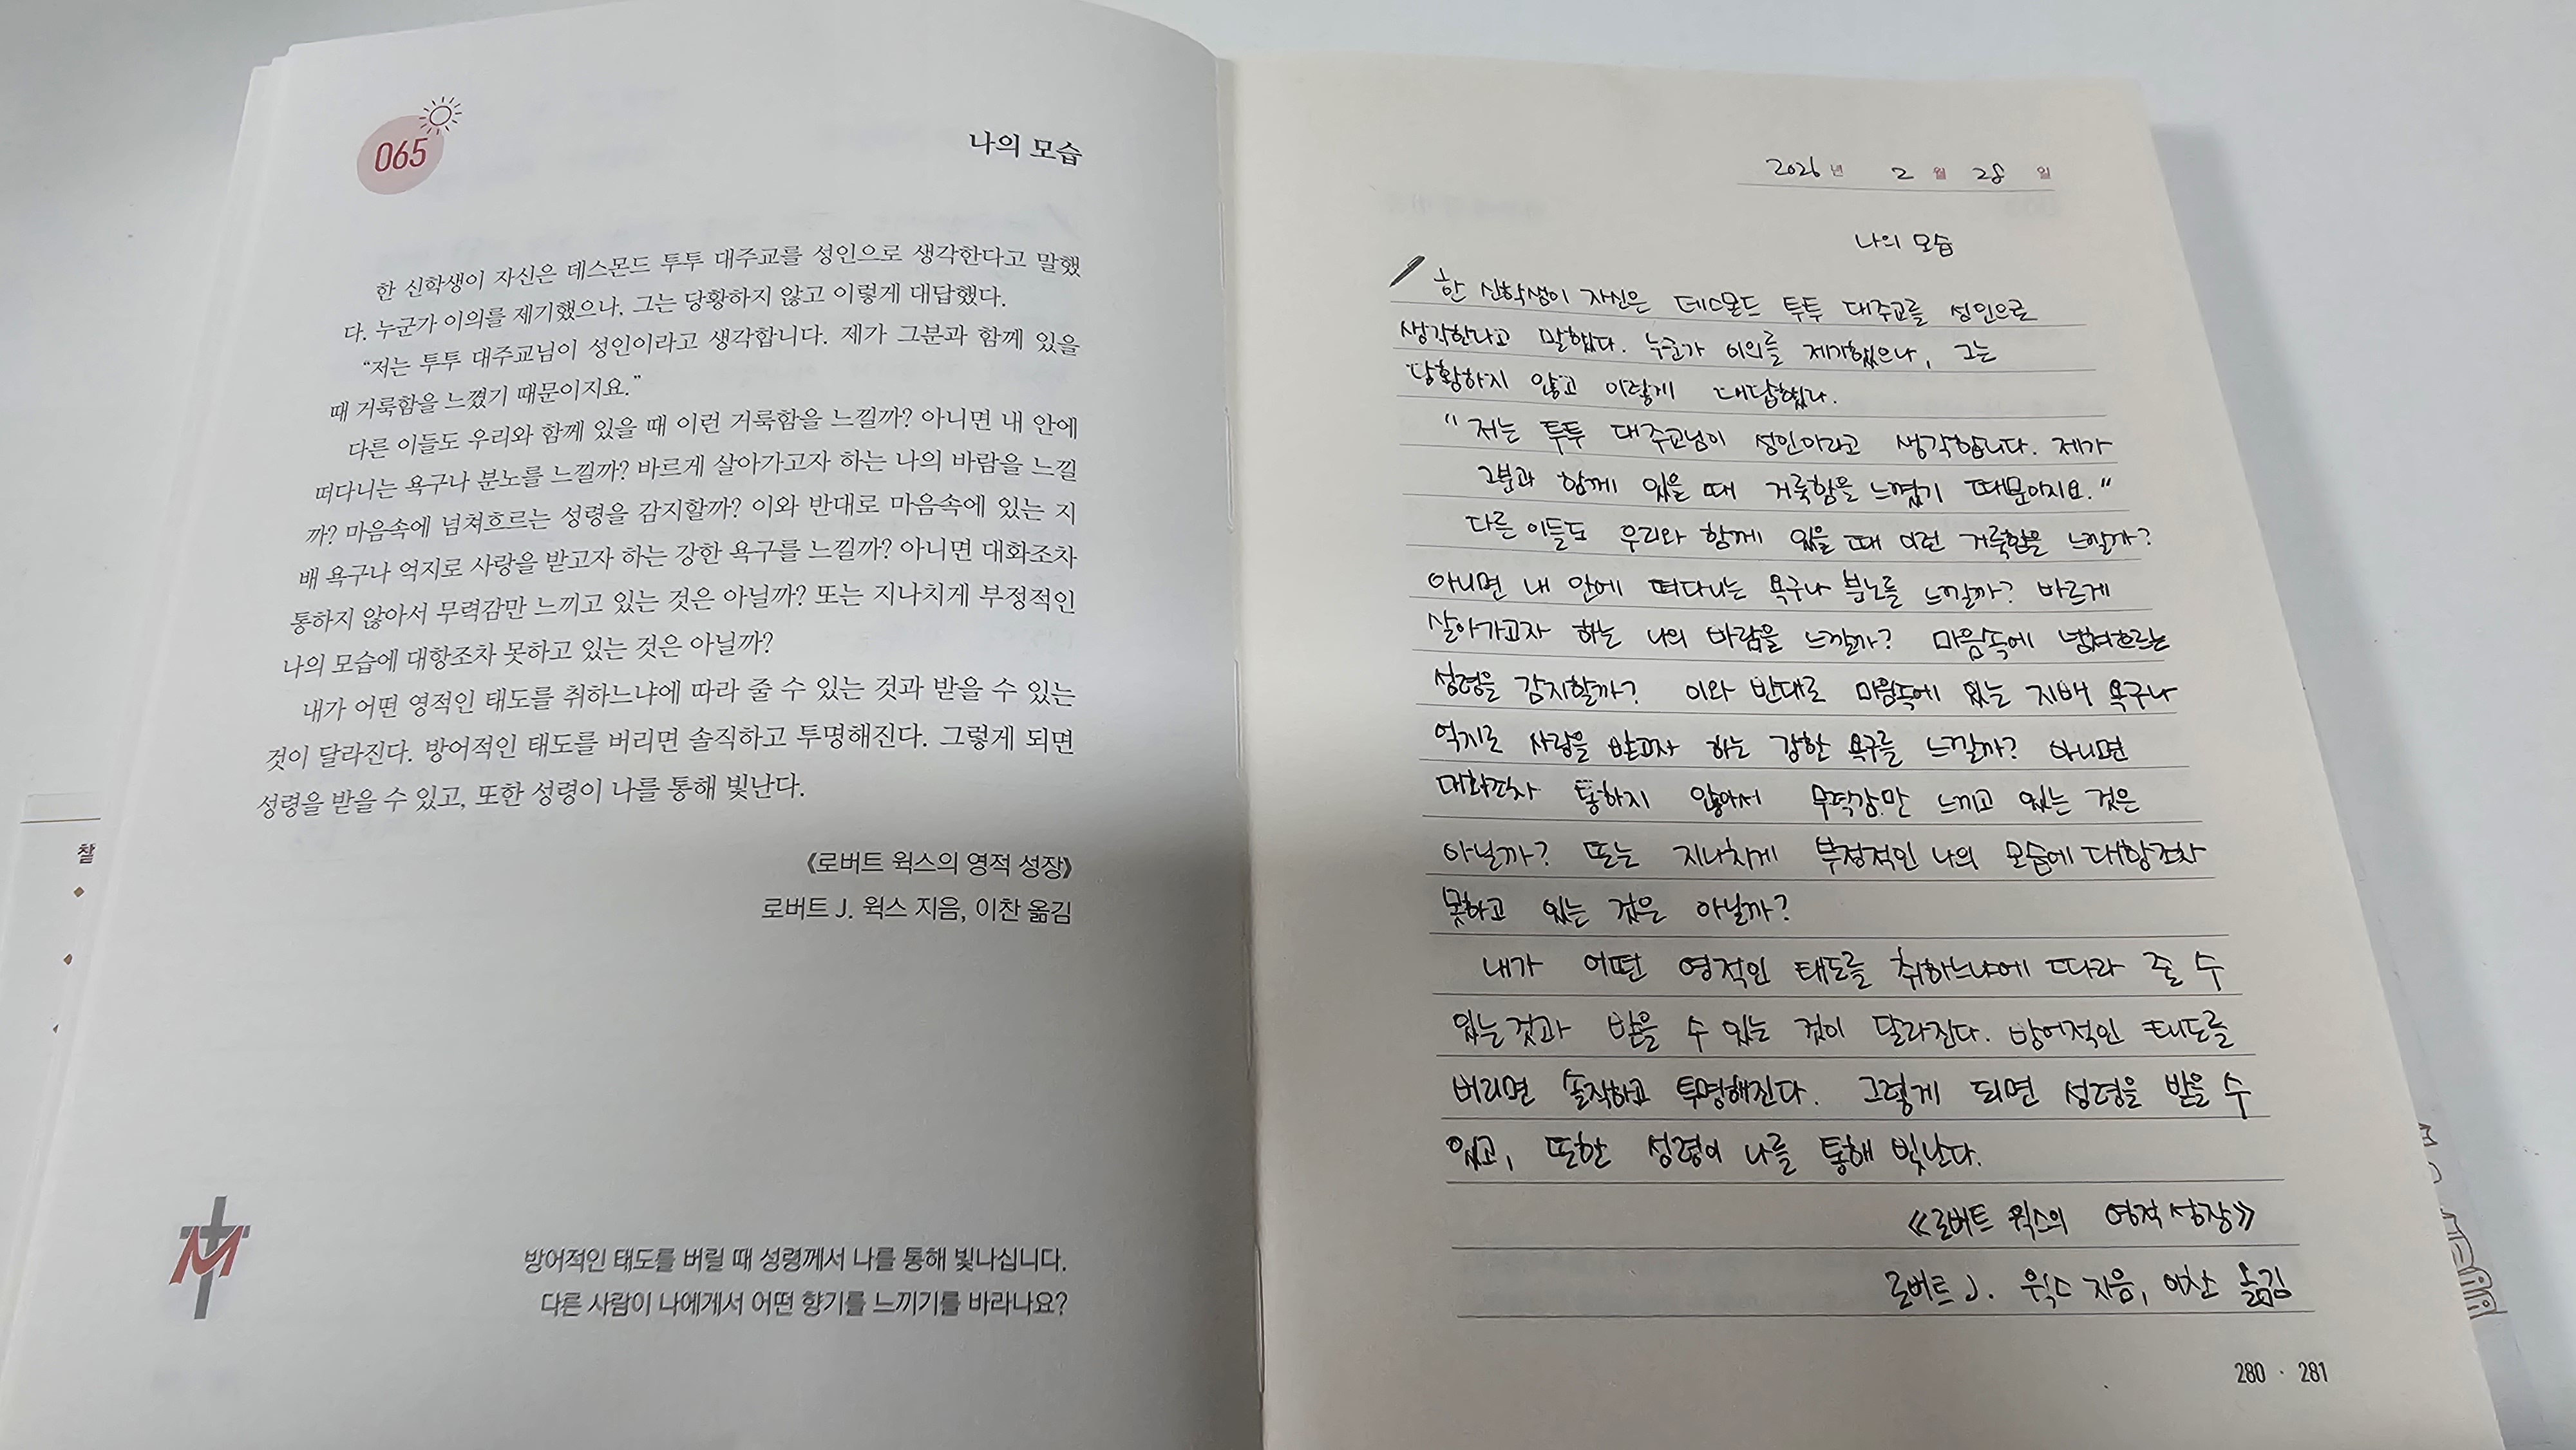 065
나의 모습
한 신학생이 자신은 데스몬드 투투 대주교를 성인으로 생각한다고 말했
다. 누군가 이의를 제기했으나, 그는 당황하지 않고 이렇게 대답했다.
“저는 투투 대주교님이 성인이라고 생각합니다. 제가 그분과 함께 있을
때 거룩함을 느꼈기 때문이지요.”
다른 이들도 우리와 함께 있을 때 이런 거룩함을 느낄까? 아니면 내 안에
떠다니는 욕구나 분노를 느낄까? 바르게 살아가고자 하는 나의 바람을 느낄
까? 마음속에 넘쳐흐르는 성령을 감지할까? 이와 반대로 마음속에 있는 지
배 욕구나 억지로 사랑을 받고자 하는 강한 욕구를 느낄까? 아니면 대화조차
통하지 않아서 무력감만 느끼고 있는 것은 아닐까? 또는 지나치게 부정적인
나의 모습에 대항조차 못하고 있는 것은 아닐까?
내가 어떤 영적인 태도를 취하느냐에 따라 줄 수 있는 것과 받을 수 있는
것이 달라진다. 방어적인 태도를 버리면 솔직하고 투명해진다. 그렇게 되면
성령을 받을 수 있고, 또한 성령이 나를 통해 빛난다.
《로버트 웍스의 영적 성장》
로버트 J. 웍스 지음, 이찬 옮김
방어적인 태도를 버릴 때 성령께서 나를 통해 빛나십니다.
다른 사람이 나에게서 어떤 향기를 느끼기를 바라나요?
참
2026년 2월 28일
나의 모습
한 신학생이 자신은 데스몬드 투투 대주교를 성인으로
생각한다고 말했다. 누군가 이의를 제기했으나, 그는
당황하지 않고 이렇게 대답했다.
“저는 투투 대주교님이 성인이라고 생각합니다. 제가
그분과 함께 있을 때 거룩함을 느꼈기 때문이지요.”
다른 이들도 우리와 함께 있을 때 이런 거룩함을 느낄까?
아니면 내 안에 떠다니는 욕구나 분노를 느낄까? 바르게
살아가고자 하는 나의 바람을 느낄까? 마음속에 넘쳐흐르는
성령을 감지할까? 이와 반대로 마음속에 있는 지배 욕구나
억지로 사랑을 받고자 하는 강한 욕구를 느낄까? 아니면
대화조차 통하지 않아서 무력감만 느끼고 있는 것은
아닐까? 또는 지나치게 부정적인 나의 모습에 대항조차
못하고 있는 것은 아닐까?
내가 어떤 영적인 태도를 취하느냐에 따라 줄 수
있는 것과 받을 수 있는 것이 달라진다. 방어적인 태도를
버리면 솔직하고 투명해진다. 그렇게 되면 성령을 받을 수
있고, 또한 성령이 나를 통해 빛난다.
《로버트 웍스의 영적 성장》
로버트 J. 웍스 지음, 이찬 옮김
280 · 281